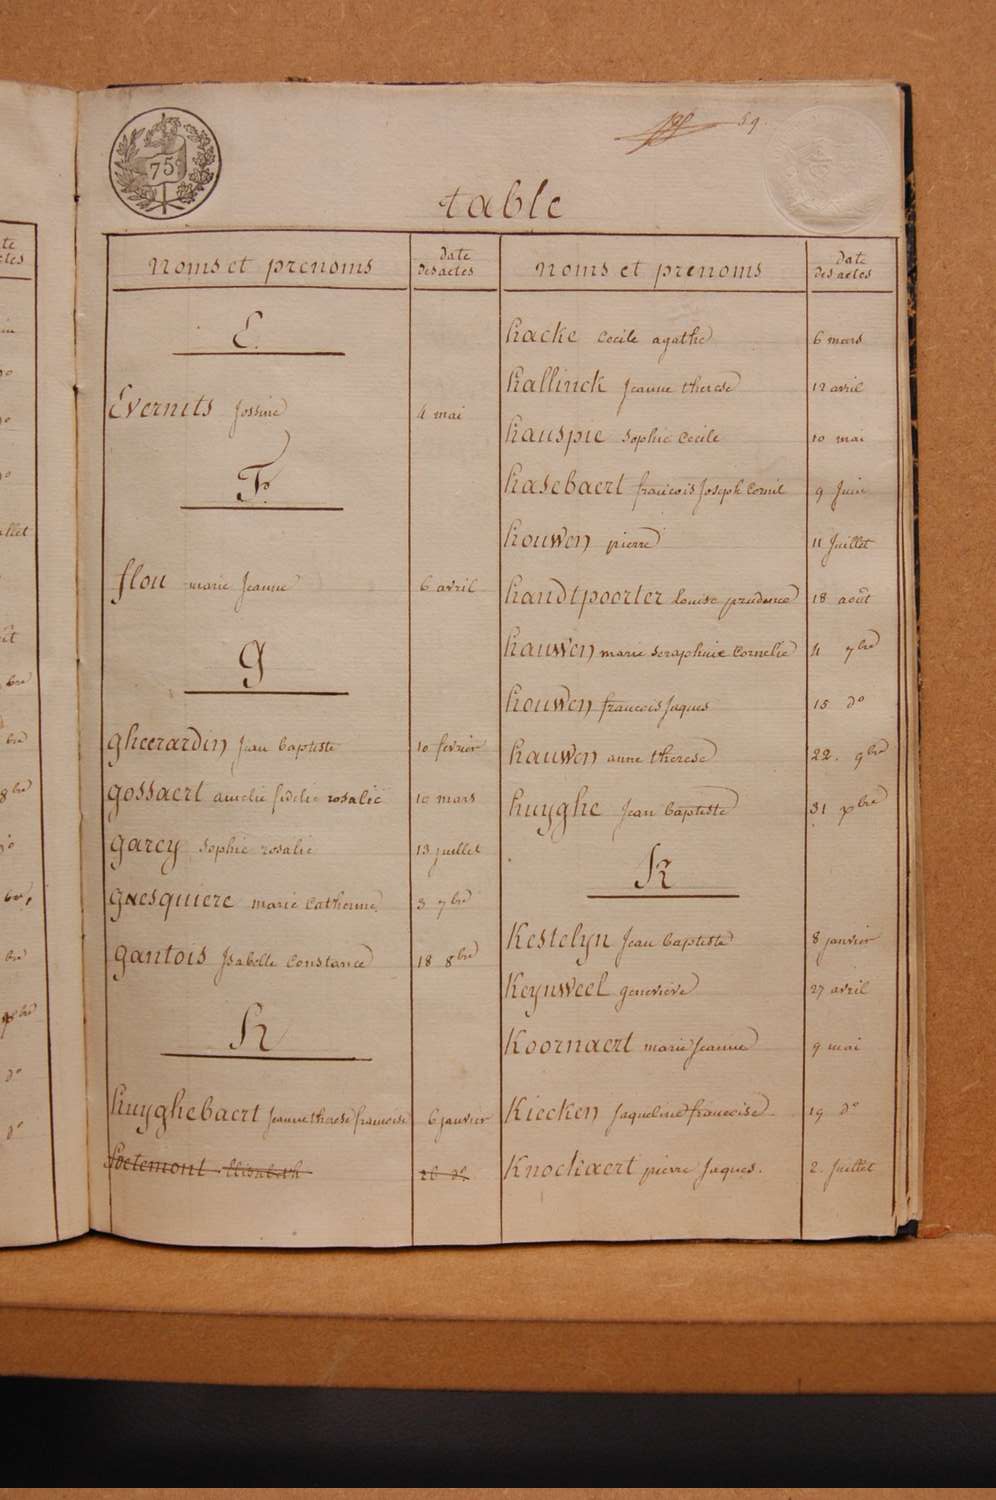 59.
75c
table
noms et prenoms
date
des actes
E.
Evernits Jossine
4 mai
F.
flou marie Jeanne
6 avril
G
gheerardin Jean baptiste
10 fevrier
gossaert amelie fidelie rosalie
10 mars
garey sophie rosalie
13 juillet
guesquiere marie Catherine
3 7bre
gantois Isabelle Constance
18 8bre
H
huyghebaert Jeanne therese francoise
6 janvier
Elisabeth
26 do.
noms et prenoms
date
des actes
hacke Cecile agathe
6 mars
hallinck Jeanne therese
12 avril
hauspie Sophie Cecile
10 mai
hasebaert francois Joseph Cornil
9 Juin
houwen pierre
11 Juillet
handtpoorter Louise prudence
18 août
hauwen marie Seraphine Cornelie
4 7bre
houwen francois Jaques
15 do
hauwen anne therese
22. 9bre
huyghe Jean baptiste
31 xbre
K
Kestelyn Jean baptiste
8 janvier
Keynweel genevieve
27 avril
Koornaert marie Jeanne
9 mai
Kiecken Jaqueline francoise
19 do
Knockaert pierre Jaques.
2. Juillet